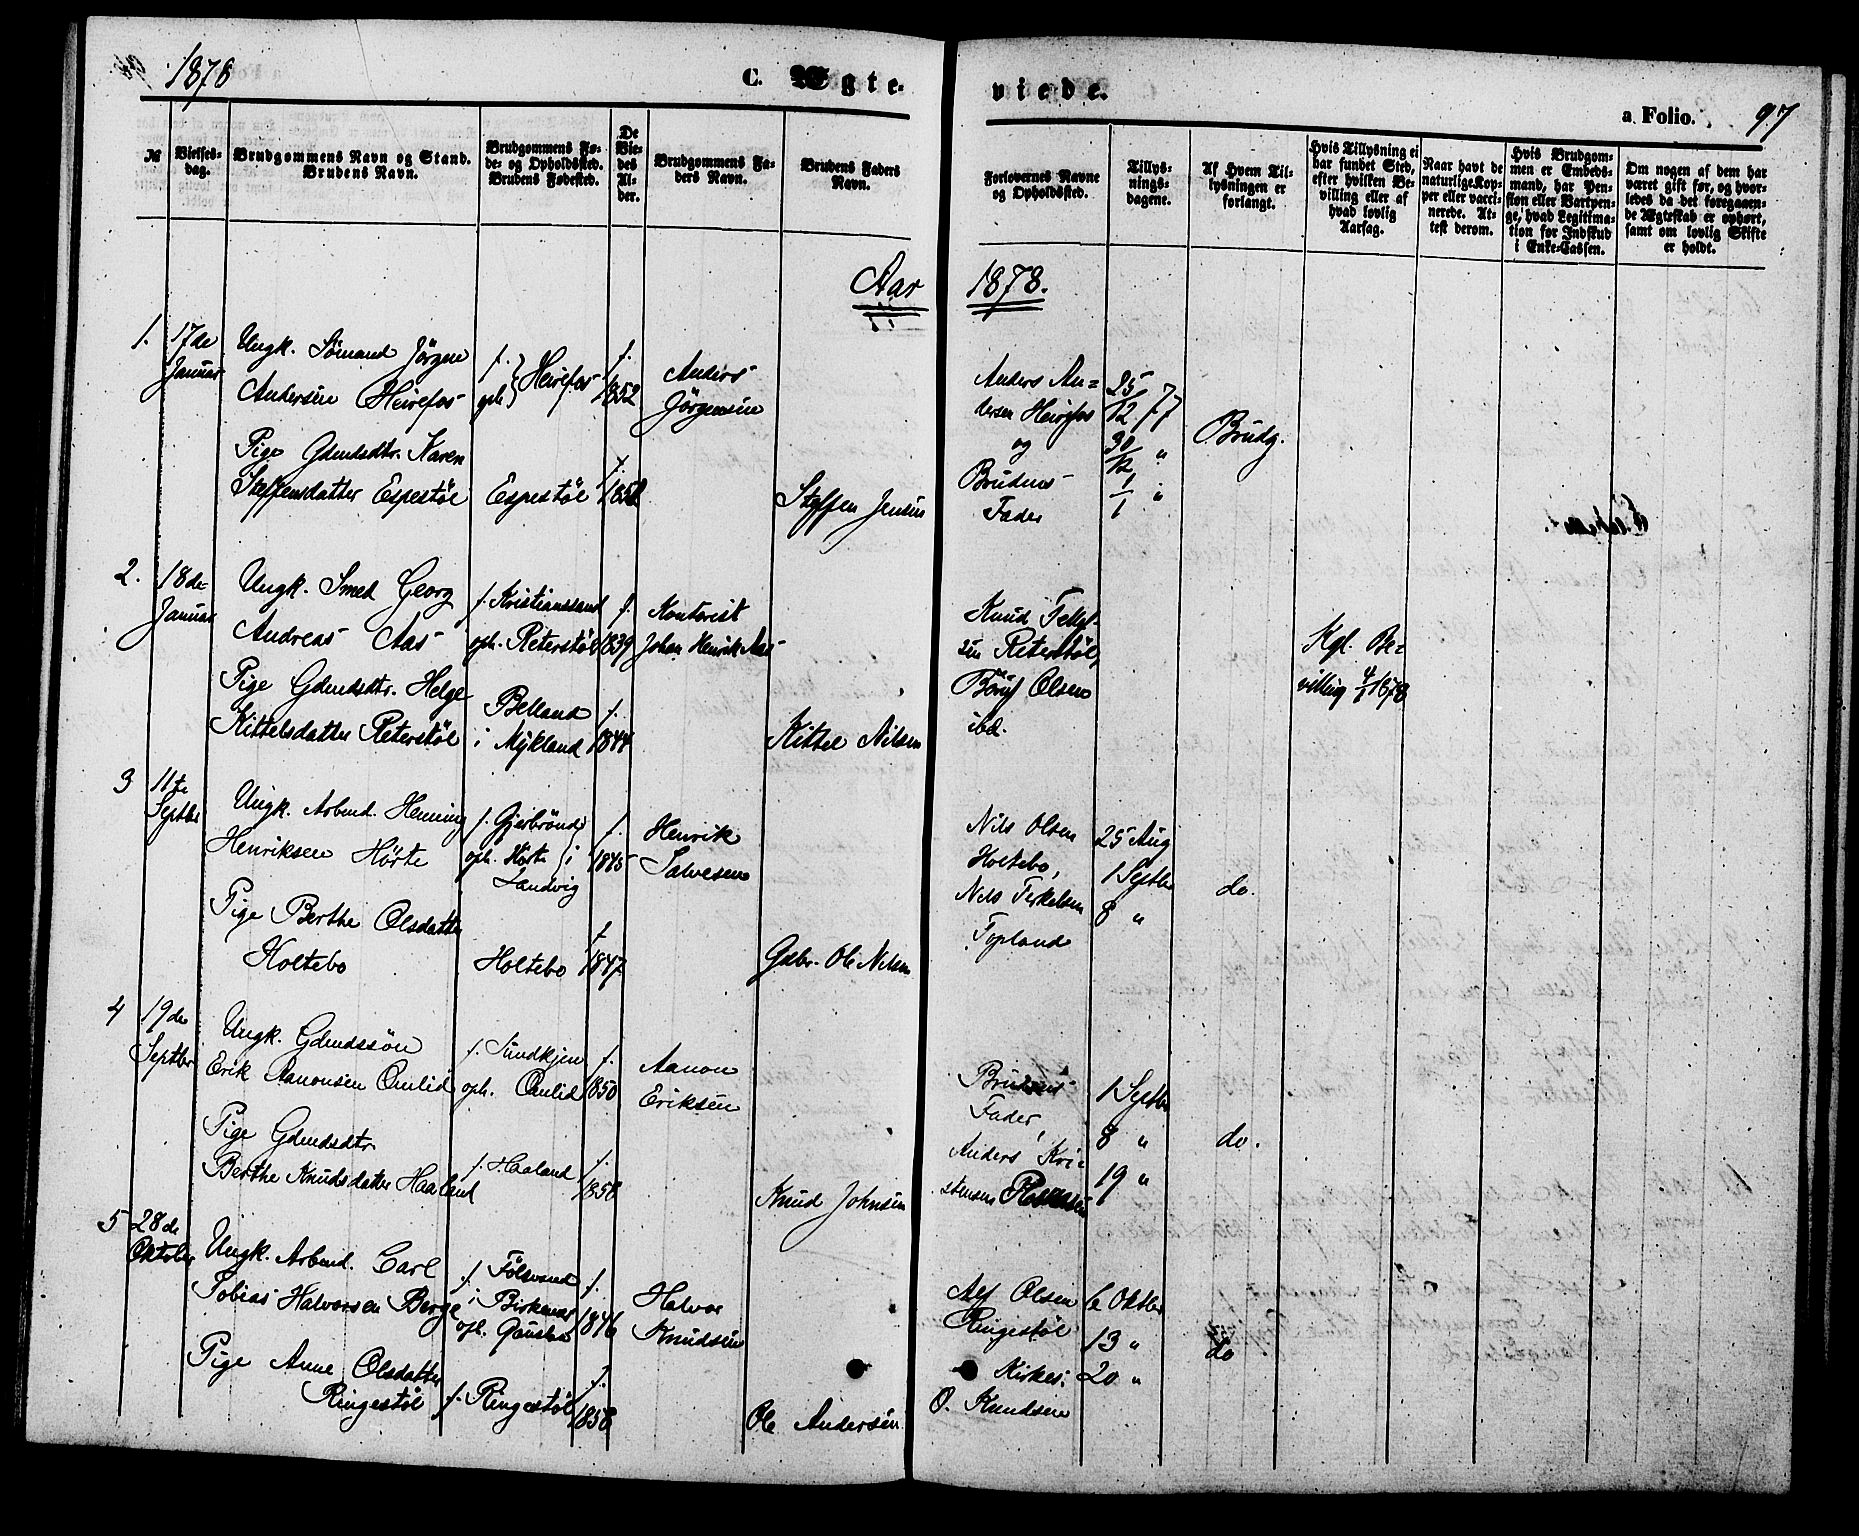 1878 C. Ægte-
viede. a Folio. 97
№
Vielses-
dag.
Brudgommens Navn og Stand.
Brudens Navn.
Brudgommens Fø-
de- og Opholdssted.
Brudens Fødested.
De
Vie-
des
Al-
der.
Brudgommens Fa-
ders Navn.
Brudens Faders
Navn.
Forlovernes Navne
og Opholdssted.
Tillys-
nings-
dagene.
Af Hvem Til-
lysningen er
forlangt.
Hvis Tillysning ei
har fundet Sted,
efter hvilken Be-
villing eller af
hvad lovlig
Aarsag.
Naar havt de
naturlige Kop-
per eller vacci-
nerede. At-
test derom.
Hvis Brudgom-
men er Embeds-
mand, har Pen-
sion eller Vartpen-
ge, hvad Legitima-
tion for Indskud
i Enke-Cassen.
Om nogen af dem har
været gift før, og hvor-
ledes da det foregaaen-
de Ægteskab er ophørt,
samt om lovlig Skifte
er holdt.
Aar 1878.
1.
17de
Januar
Ungk. Sömand Jörgen
Andersen Heirefos
Pige Gdmdsdtr. Karen
Steffensdatter Espestöl
f.
oph. } Heirefos
Espestöl
f.
1852
f.
Anders
Jörgensen
Steffen Jensen
Anders An=
dersen Heirefos
og
Brudens
Fader
25/12 77
30/12 "
1/1 "
Brudg.
2.
18de
Januar
Ungk. Smed Georg
Andreas Aas
Pige Gdmdsdtr. Helge
Kittelsdatter Reterstöl
f. Kristianssand
oph. Reterstöl
Belland
i Mykland
f.
1839
f.
1844
Kontorist
Johan Henrik Aas
Kittel Nilsen
Knud
Reterstöl,
Olsen
ibd.
Kgl. Be=
villing 4/1 1878
3
11te
Septbr
Ungk. Arbmd. Henning
Henriksen Hörte
Pige Berthe Olsdatter
Holtebo
f. Gjerbrönd
oph. Hörte } i
Landvig
Holtebo
f.
1845
f.
1847
Henrik
Salvesen
Gdbr. Ole Nilsen
Nils Olsen
Holtebo,
Nils Terkelsen
Topland
25 Aug
1 Septbr
8 "
do.
4
19de
Septbr
Ungk. Gdmdssön
Erik Aanonsen Omlid
Pige Gdmdsdtr
Berthe Knudsdatter Haaland
f. Sundkjen
oph. Omlid
f. Haaland
f.
1850
f.
1858
Aanon
Eriksen
Knud Johnsen
Brudens
Fader,
Anders Kri=
stensen
1 Septbr
8 "
19 "
do.
5
28de
Oktober
Ungk. Arbmd. Carl
Tobias Halvorsen Berge
Pige Anne Olsdatter
Ringestöl
f. Fölsvand
i Birkenæs
oph.
f. Ringestöl
f.
1846
f.
1858
Halvor
Knudsen
Ole Andersen
Alf Olsen
Ringestöl
Kirkes:
O. Knudsen
6 Oktbr
13 "
20 "
do